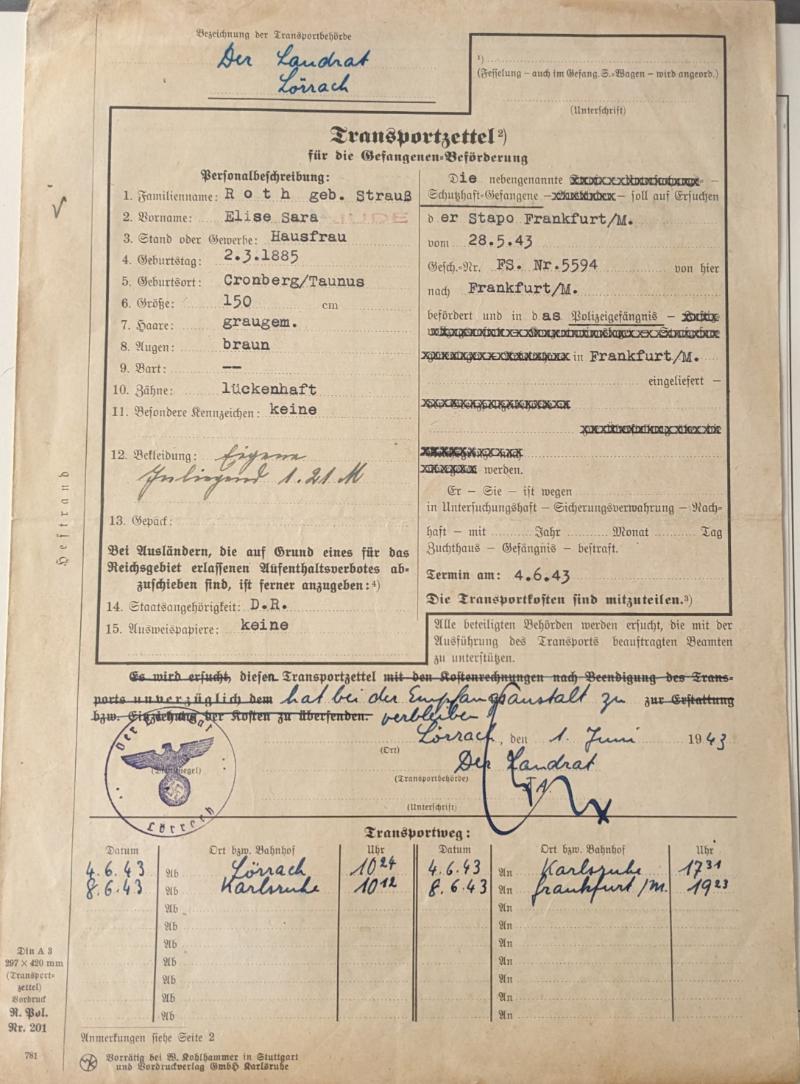 Bezeichnung der Transportbehörde
Der Landrat
Lörrach
¹)
(Fesselung – auch im Gefang.S.=Wagen – wird angeord.)
(Unterschrift)
Transportzettel²)
für die Gefangenen=Beförderung
Personalbeschreibung:
1. Familienname: Roth geb. Strauß
2. Vorname: Elise Sara
3. Stand oder Gewerbe: Hausfrau
4. Geburtstag: 2.3.1885
5. Geburtsort: Cronberg/Taunus
6. Größe: 150 cm
7. Haare: graugem.
8. Augen: braun
9. Bart: --
10. Zähne: lückenhaft
11. Besondere Kennzeichen: keine
12. Bekleidung: Eigene
Inliegend 1.21 M
13. Gepäck:
Bei Ausländern, die auf Grund eines für das
Reichsgebiet erlassenen Aufenthaltsverbotes ab=
zuschieben sind, ist ferner anzugeben:⁴)
14. Staatsangehörigkeit: D.R.
15. Ausweispapiere: keine
Die nebengenannte
Schutzhaft=Gefangene – soll auf Ersuchen
der Stapo Frankfurt/M.
vom 28.5.43
Gesch.=Nr. FS. Nr.5594 von hier
nach Frankfurt/M.
befördert und in das Polizeigefängnis –
in Frankfurt/M.
eingeliefert –
werden.
Er – Sie – ist wegen
in Untersuchungshaft – Sicherungsverwahrung – Nach=
haft – mit Jahr Monat Tag
Zuchthaus – Gefängnis – bestraft.
Termin am: 4.6.43
Die Transportkosten sind mitzuteilen.³)
Alle beteiligten Behörden werden ersucht, die mit der
Ausführung des Transports beauftragten Beamten
zu unterstützen.
Es wird ersucht, diesen Transportzettel mit den Kostenrechnungen nach Beendigung des Trans=
ports unverzüglich dem hat bei der Empfangsanstalt zu zur Erstattung
bzw. Einziehung der Kosten zu übersenden. verbleiben
Lörrach, den 1. Juni 1943
(Ort)
Der Landrat
(Transportbehörde)
(Unterschrift)
Der Landrat
(Dienstsiegel)
Lörrach
Transportweg:
Datum Ort bzw. Bahnhof Uhr Datum Ort bzw. Bahnhof Uhr
4.6.43 Ab Lörrach 10²⁴ 4.6.43 An Karlsruhe 17³¹
8.6.43 Ab Karlsruhe 10¹² 8.6.43 An Frankfurt/M. 19²³
Ab An
Ab An
Ab An
Ab An
Ab An
Ab An
Ab An
Heftrand
Din A 3
297 × 420 mm
(Transport=
zettel)
Vordruck
R. Pol.
Nr. 201
781
Anmerkungen siehe Seite 2
Vorrätig bei W. Kohlhammer in Stuttgart
und Vordruckverlag GmbH Karlsruhe